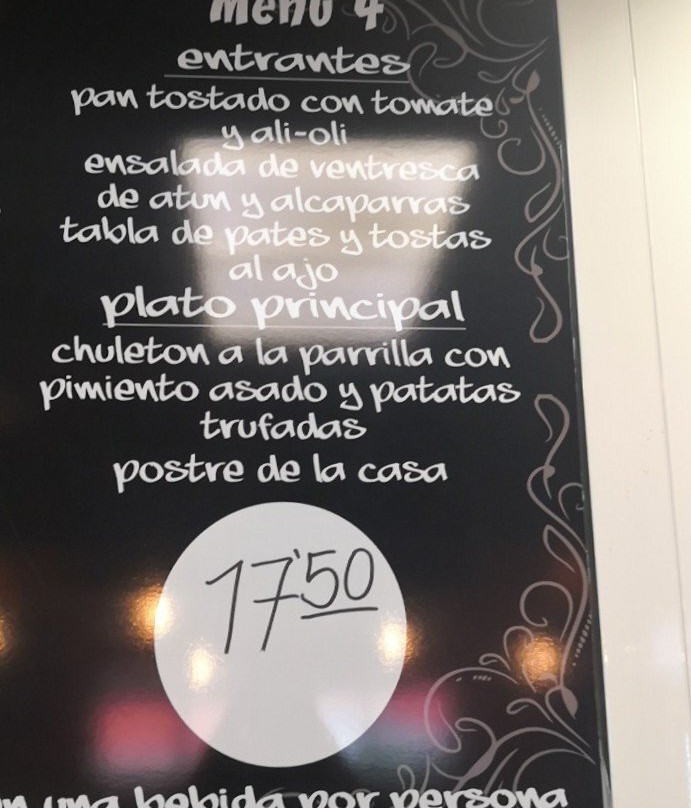 menu 4
entrantes
pan tostado con tomate
y ali-oli
ensalada de ventresca
de atun y alcaparras
tabla de pates y tostas
al ajo
plato principal
chuleton a la parrilla con
pimiento asado y patatas
trufadas
postre de la casa
17'50
una bebida por persona